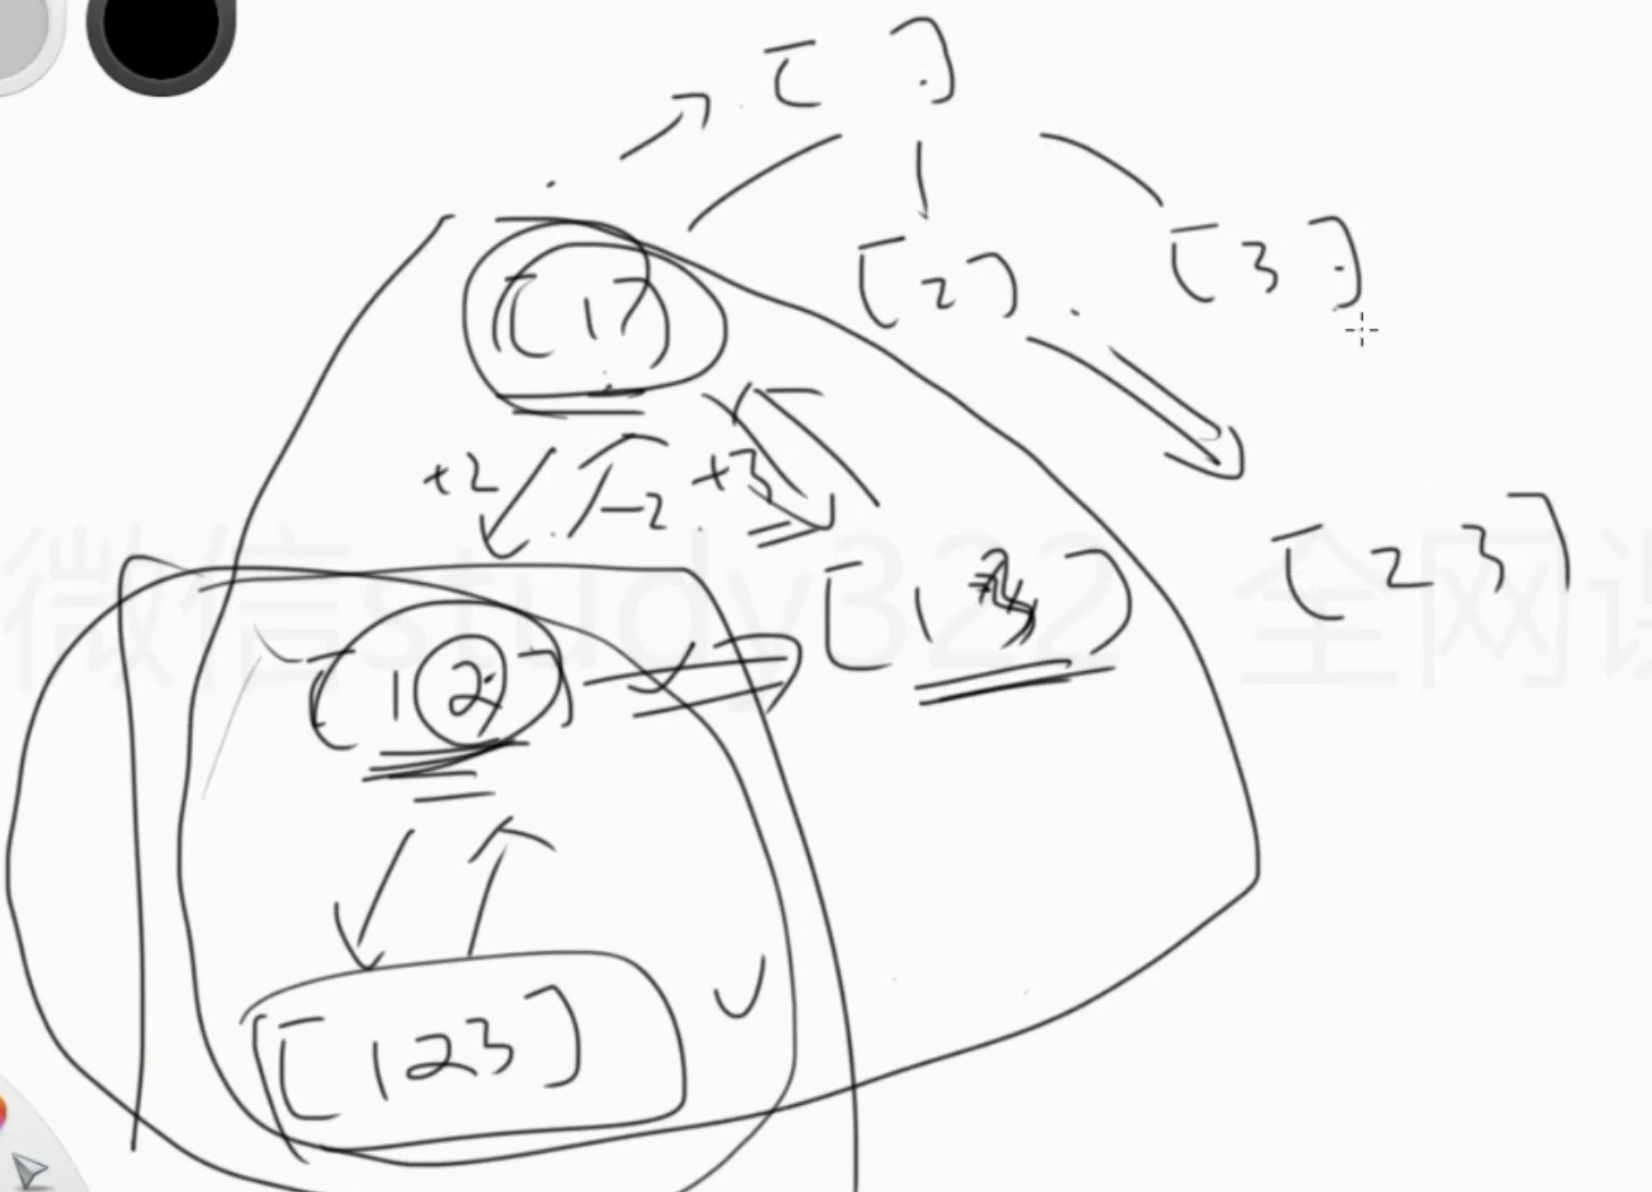 [ ]
[1]
[2]
[3]
+2
-2
+3
[1 2]
[1 3]
[2 3]
[1 2 3]
微信study322 全网